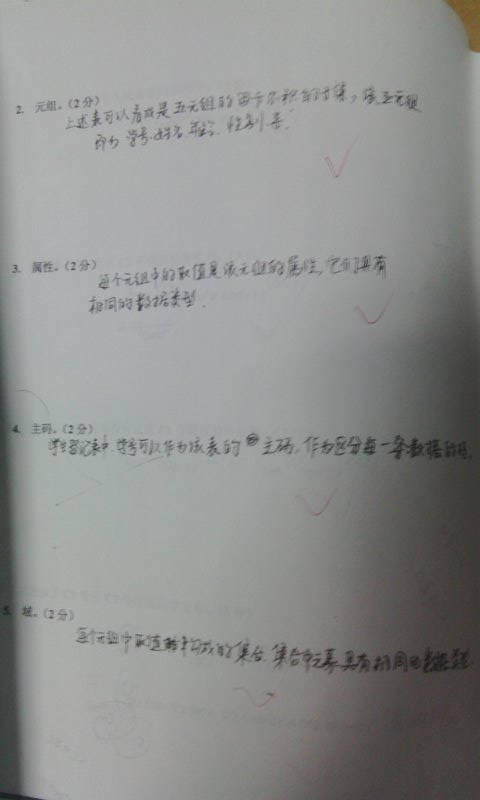 2. 元组。(2分)
上述表可以看成是五元组的笛卡尔积的子集，该五元组
即为 学号.姓名.年龄. 性别.系.
3. 属性。(2分)
每个元组中的取值是该元组的属性，它们具有
相同的数据类型.
4. 主码。(2分)
学生登记表中.学号可以作为该表的 主码，作为区分每一条数据的
5. 域。(2分)
每个元组中取值 构成的集合. 集合中元素具有相同的数据类型